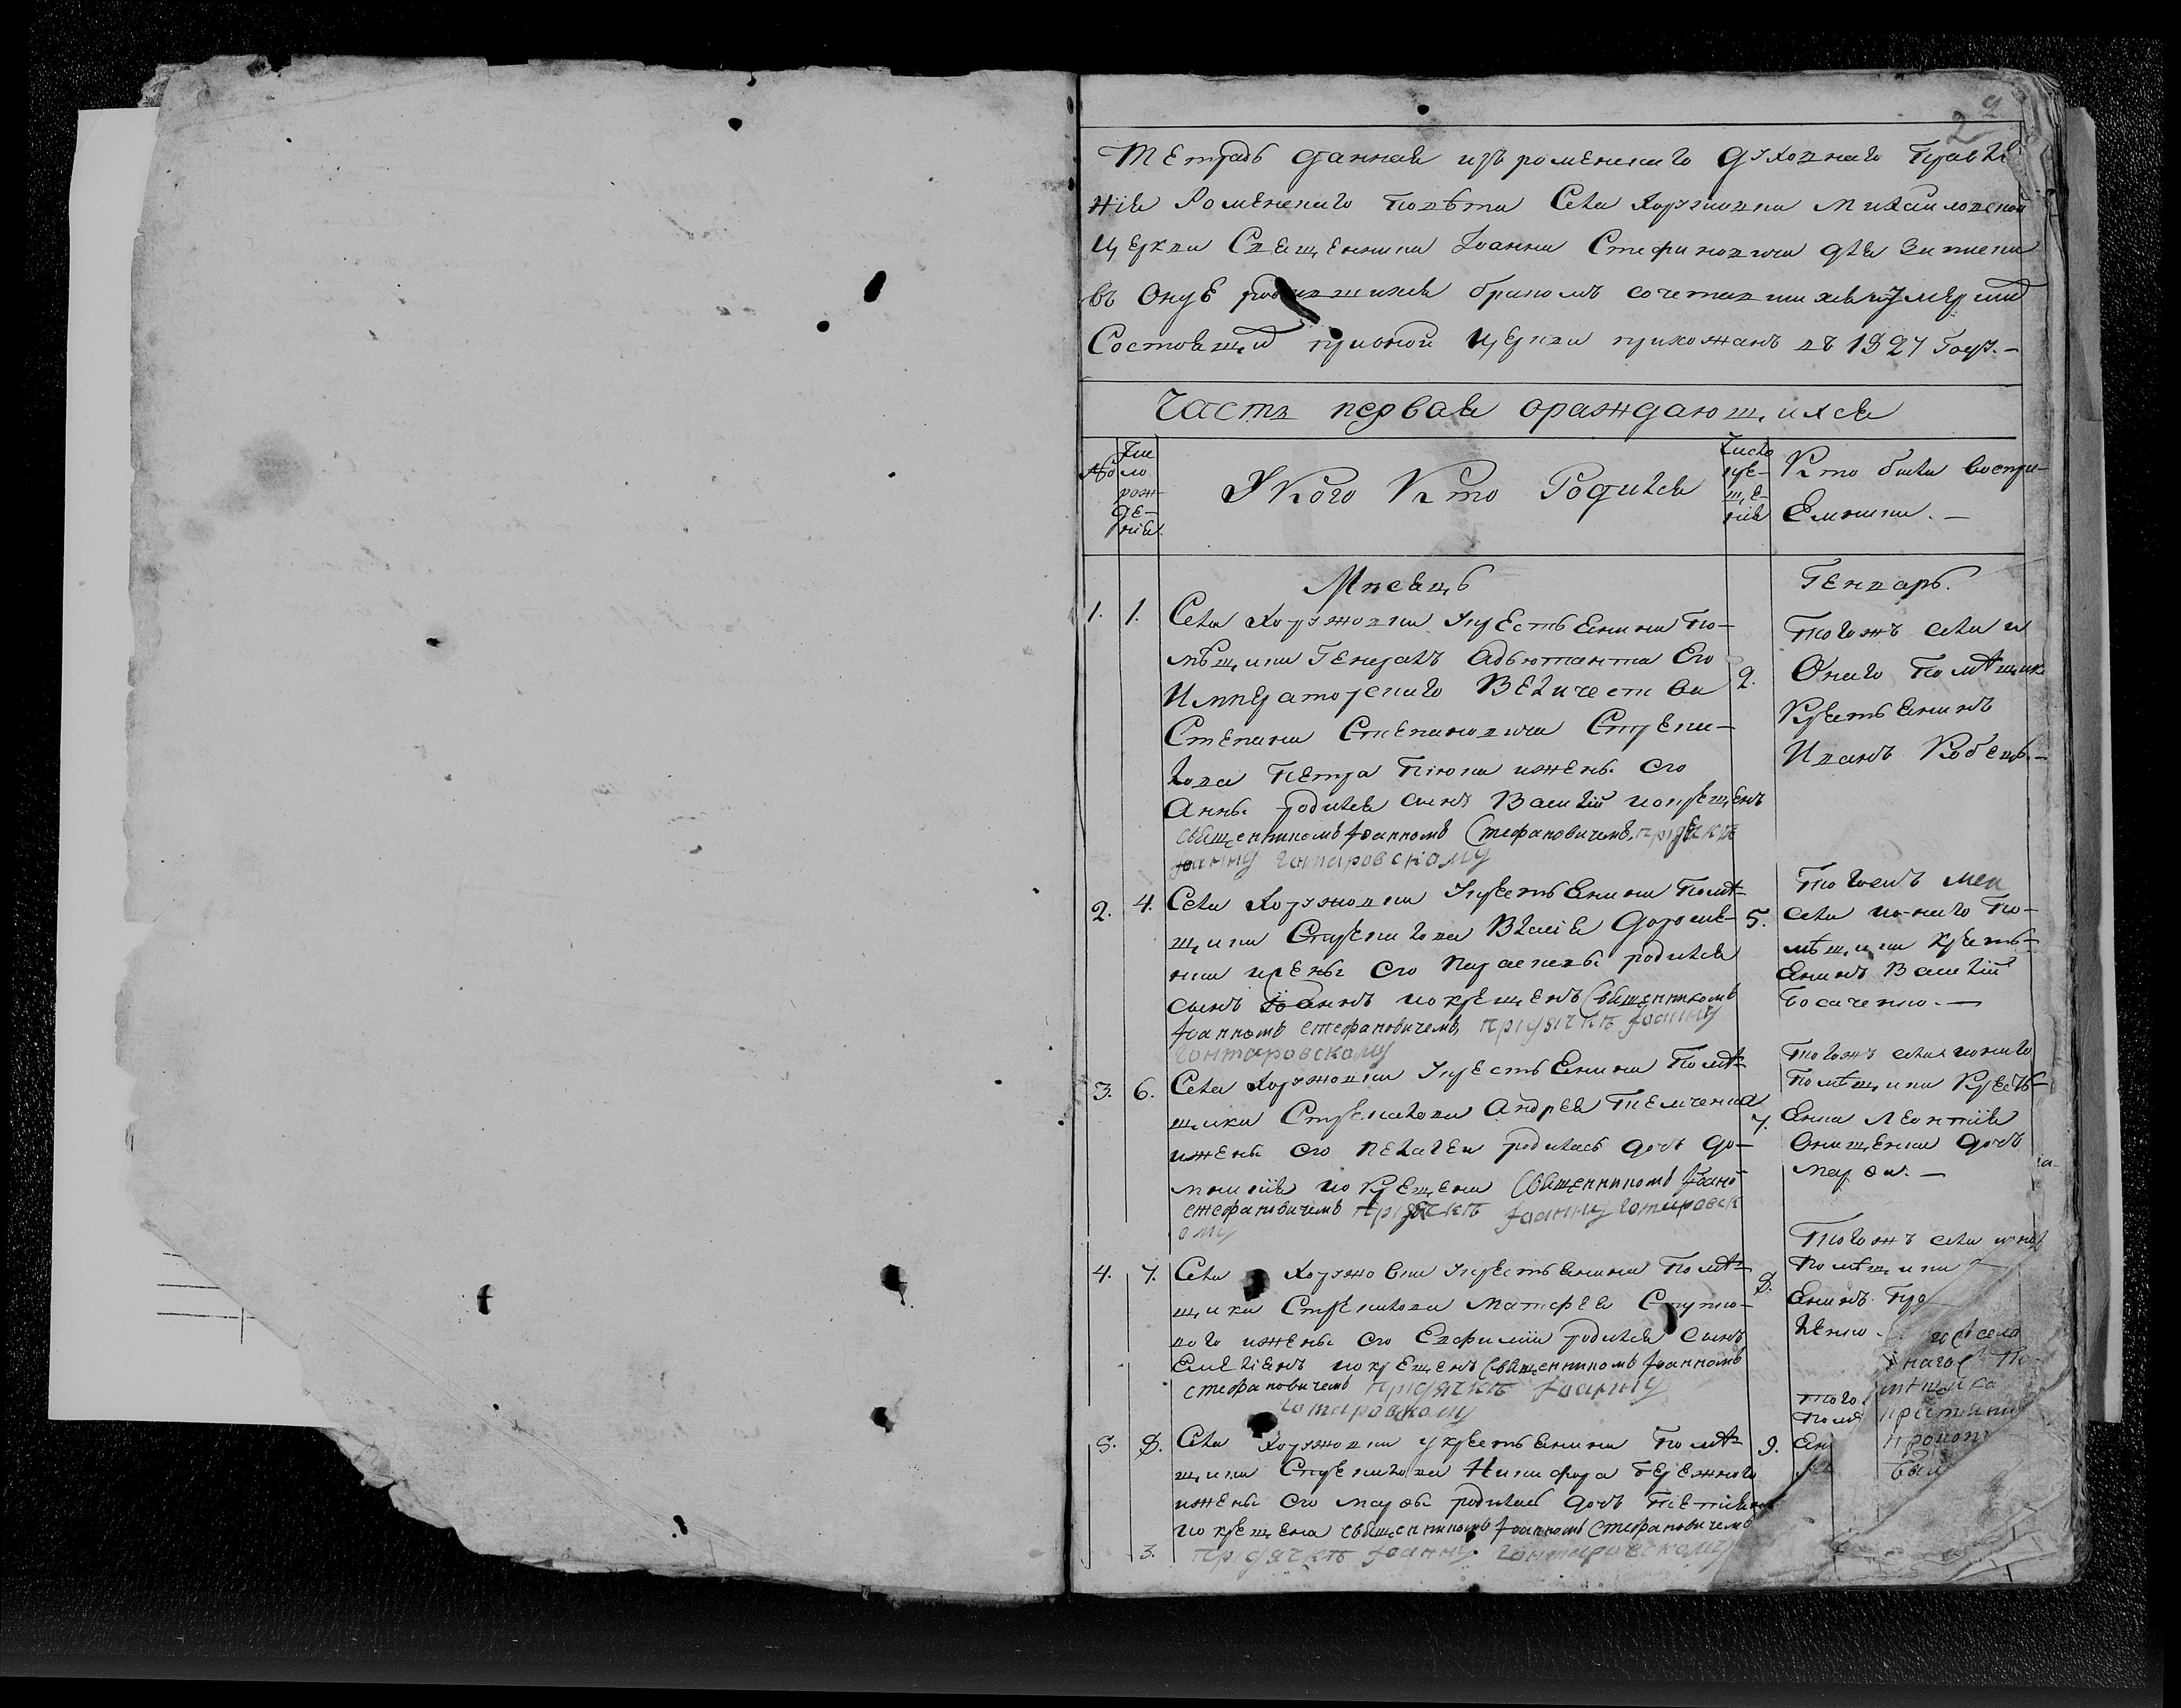 2
Тетрадь данная изъ роменскаго духовнаго Правле
нія Роменскаго Повѣта Села Коржовки Михайловской
Церкви Священника Іоанна Стефановича для записки
въ Оную родившихся бракомъ сочетавшихся и умершихъ
Состоящихъ при оной Церкви прихожанъ въ 1827 Году.—
Часть первая ораждающихся
№
Чис
ло
рож-
де-
нія.
У Кого Кто Родился
Число
кре-
ще-
нія
Кто были воспри-
емники.—
Мѣсяцъ
Генварь.
1. 1. Села Коржовки у крестьянина По-
мѣщика Генералъ Адъютанта Его
Императорскаго Величества
Степана Степановича Стрека-
лова Петра и жены его
Анны родился сынъ Василій и окрещенъ
священникомъ Іоанномъ Стефановичемъ, при дячкѣ
Іоанну Гонтаровскому
2.
Тогожъ села и
Онаго Помѣщика
Крестьянинъ
Иванъ
2. 4. Села Коржовки у крестьянина Помѣ-
щика Стрекалова Власія
и жены его Параскевы родился
сынъ Іоаннъ и окрещенъ Священникомъ
Іоанномъ Стефановичемъ, при дячкѣ Іоанну
Гонтаровскому
5.
Тогожъ
села и онаго По-
мѣщика кресть-
янинъ Василій
3. 6. Села Коржовки у крестьянина Помѣ-
щика Стрекалова Андрея Темченка
и жены его Пелагеи родилась дочь До-
мникія и окрещена Священникомъ Іоано
Стефановичемъ при дячкѣ Іоанну Гонтаровск
ому
7.
Тогожъ села и онаго
Помѣщика Кресть-
янина Леонтія
Онищенка дочь
Марѳа.—
4. 7. Села Коржовки у крестьянина Помѣ-
щика Стрекалова Матфея
и жены его Евфиміи родился сынъ
Емеліянъ и окрещенъ Священникомъ Іоанномъ
Стефановичемъ при дячкѣ Іоанну
Гонтаровскому
8.
Тогожъ села и
Помѣщика
янинъ
5. 8. Села Коржовки у крестьянина Помѣ-
щика Стрекалова Никифора Бережного
и жены его Марѳы родилась дочь Тетіяна
и окрещена священникомъ Іоанномъ Стефановичемъ
при дячкѣ Іоанну Гонтаровскому
9.
3.